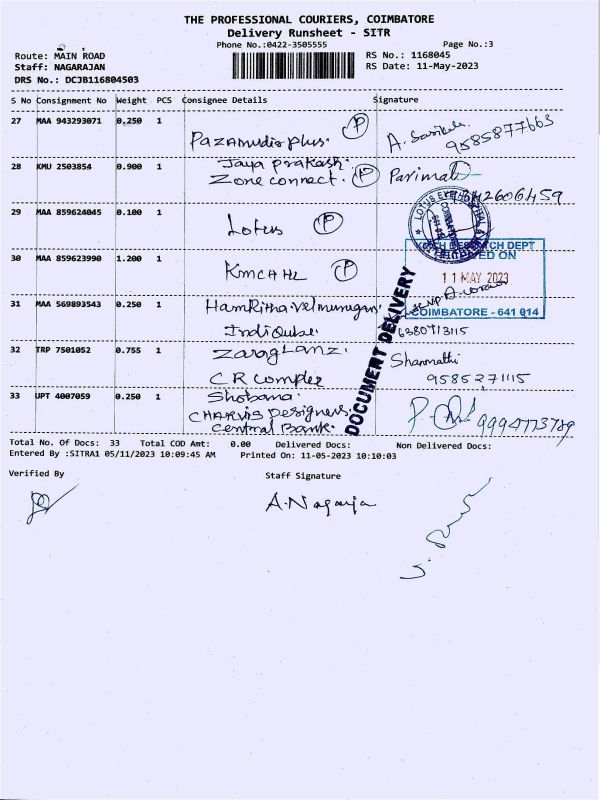 THE PROFESSIONAL COURIERS, COIMBATORE
Delivery Runsheet - SITR
Phone No.:0422-3505555 Page No.:3
Route: MAIN ROAD RS No.: 1168045
Staff: NAGARAJAN RS Date: 11-May-2023
DRS No.: DCJB116804503
S No Consignment No Weight PCS Consignee Details Signature
27 MAA 943293071 0.250 1 Pazamudir Plus. P A. Sasikala 9585877663
28 KMU 2503854 0.900 1 Jaya prakash.
Zone connect. P Parimal
29 MAA 859624045 0.100 1 Lotus P
LOTUS EYE
DESPATCH DEPT
ED ON
30 MAA 859623990 1.200 1 KMCH HL P
11 MAY 2023
COIMBATORE - 641 014
31 MAA 569893543 0.250 1 Hamritha.velmurugan.
IndiQube. 6380713115
32 TRP 7501052 0.755 1 Zaraglanz. Shanmathi
CR complex 9585271115
33 UPT 4007059 0.250 1 Shobana.
CHARVIS Designers.
Central Bank. 9994773789
DOCUMENT DELIVERY
Total No. Of Docs: 33 Total COD Amt: 0.00 Delivered Docs: Non Delivered Docs:
Entered By :SITRA1 05/11/2023 10:09:45 AM Printed On: 11-05-2023 10:10:03
Verified By Staff Signature
A.Nagaraja